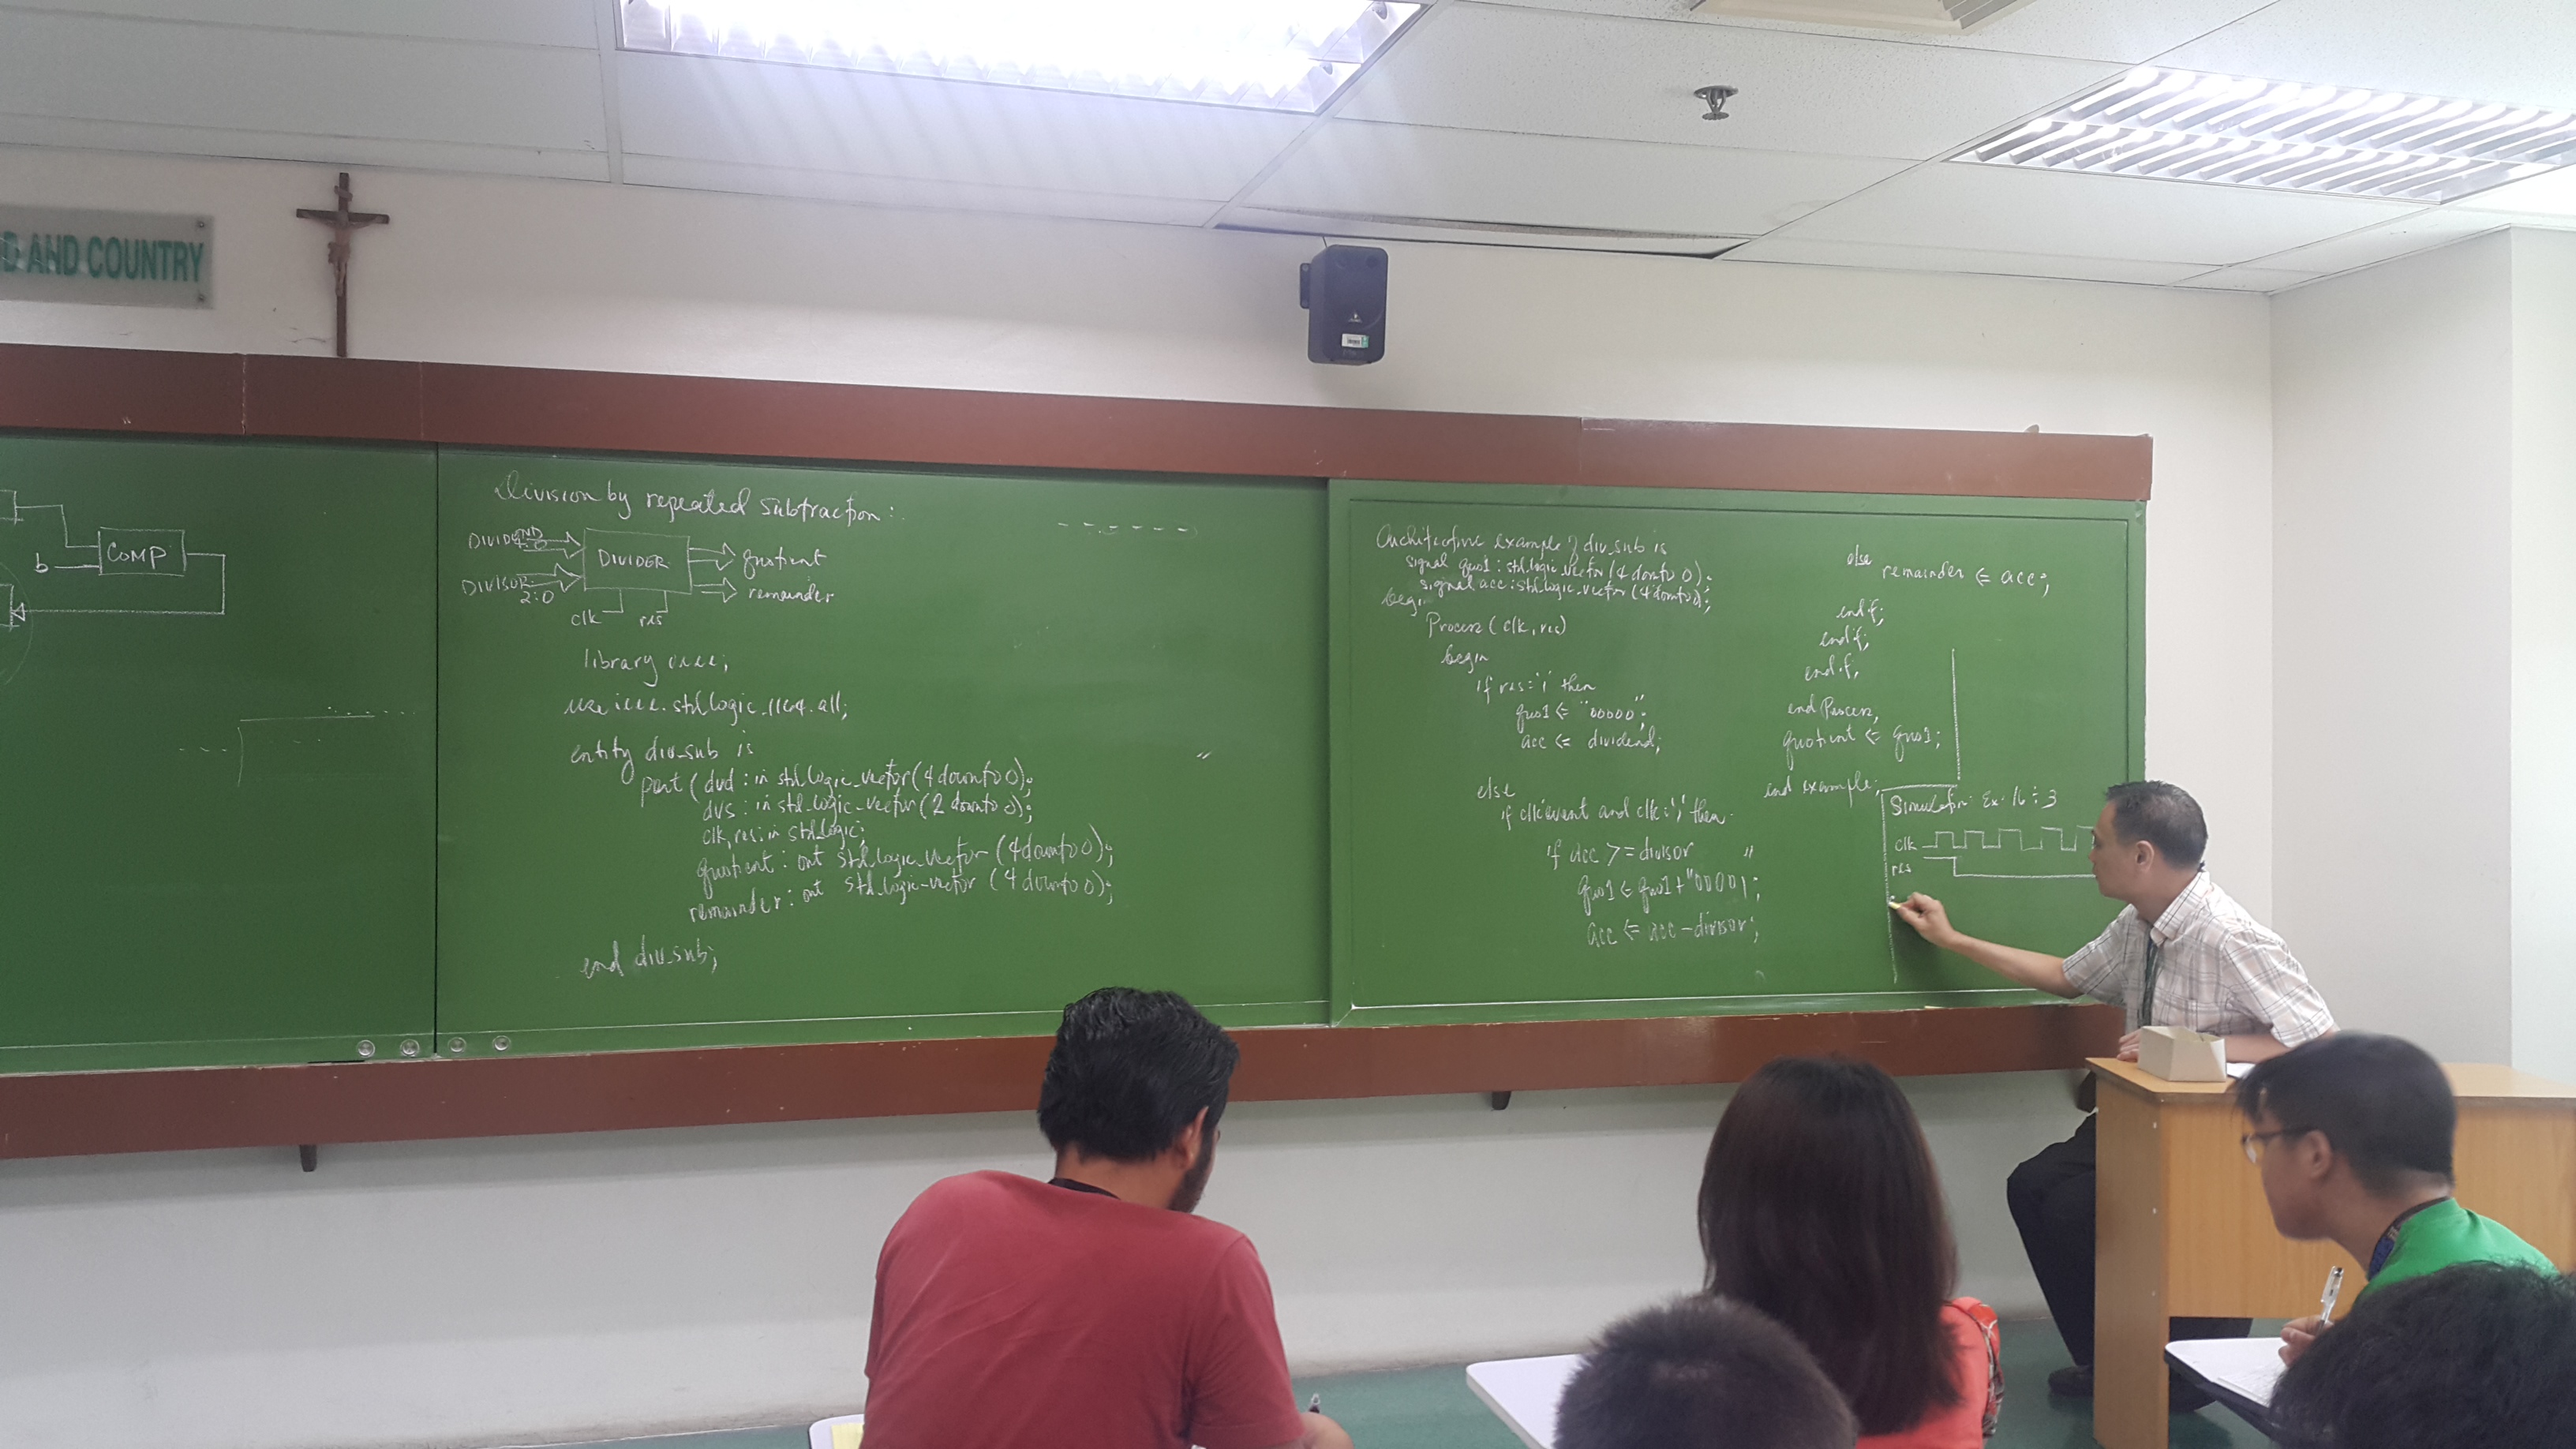 D AND COUNTRY
b
COMP
Division by repeated subtraction:
DIVIDEND
4:0
DIVIDER
quotient
DIVISOR
2:0
remainder
clk
res
library ieee;
use ieee.std_logic_1164.all;
entity div_sub is
port (dvd: in std_logic_vector(4 downto 0);
dvs: in std_logic_vector(2 downto 0);
clk, res: in std_logic;
quotient: out std_logic_vector (4 downto 0);
remainder: out std_logic_vector (4 downto 0);
end div_sub;
Architecture example of div_sub is
signal quo1: std_logic_vector (4 downto 0);
signal acc: std_logic_vector (4 downto 0);
begin
Process (clk, res)
begin
if res='1' then
quo1 <= "00000";
acc <= dividend;
else
if clk'event and clk='1' then
if acc >= divisor "
quo1 <= quo1+"00001;
acc <= acc-divisor;
else
remainder <= acc;
end if;
end if;
end if;
end Process;
quotient <= quo1;
end example;
Simulation: Ex. 16÷3
clk
res